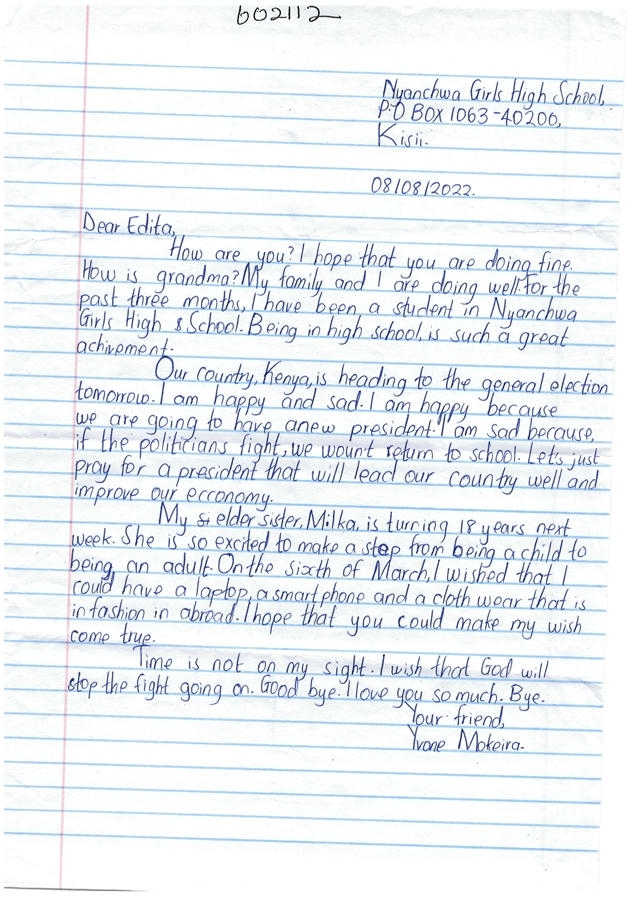 602112
Nyanchwa Girls High School,
P.O BOX 1063-40200,
Kisii.
08/08/2022.
Dear Edita,
How are you? I hope that you are doing fine.
How is grandma? My family and I are doing well. For the
past three months, I have been a student in Nyanchwa
Girls High School. Being in high school, is such a great
achivement.
Our country, Kenya, is heading to the general election
tomorrow. I am happy and sad. I am happy because
we are going to have anew president. I am sad because,
if the politicians fight, we woun't return to school. Let's just
pray for a president that will lead our country well and
improve our ecconomy.
My elder sister, Milka, is turning 18 years next
week. She is so excited to make a step from being a child to
being an adult. On the sixth of March, I wished that I
could have a laptop, a smart phone and a cloth wear that is
in fashion in abroad. I hope that you could make my wish
come true.
Time is not on my sight. I wish that God will
stop the fight going on. Good bye. I love you so much. Bye.
Your friend,
Yvone Mokeira.